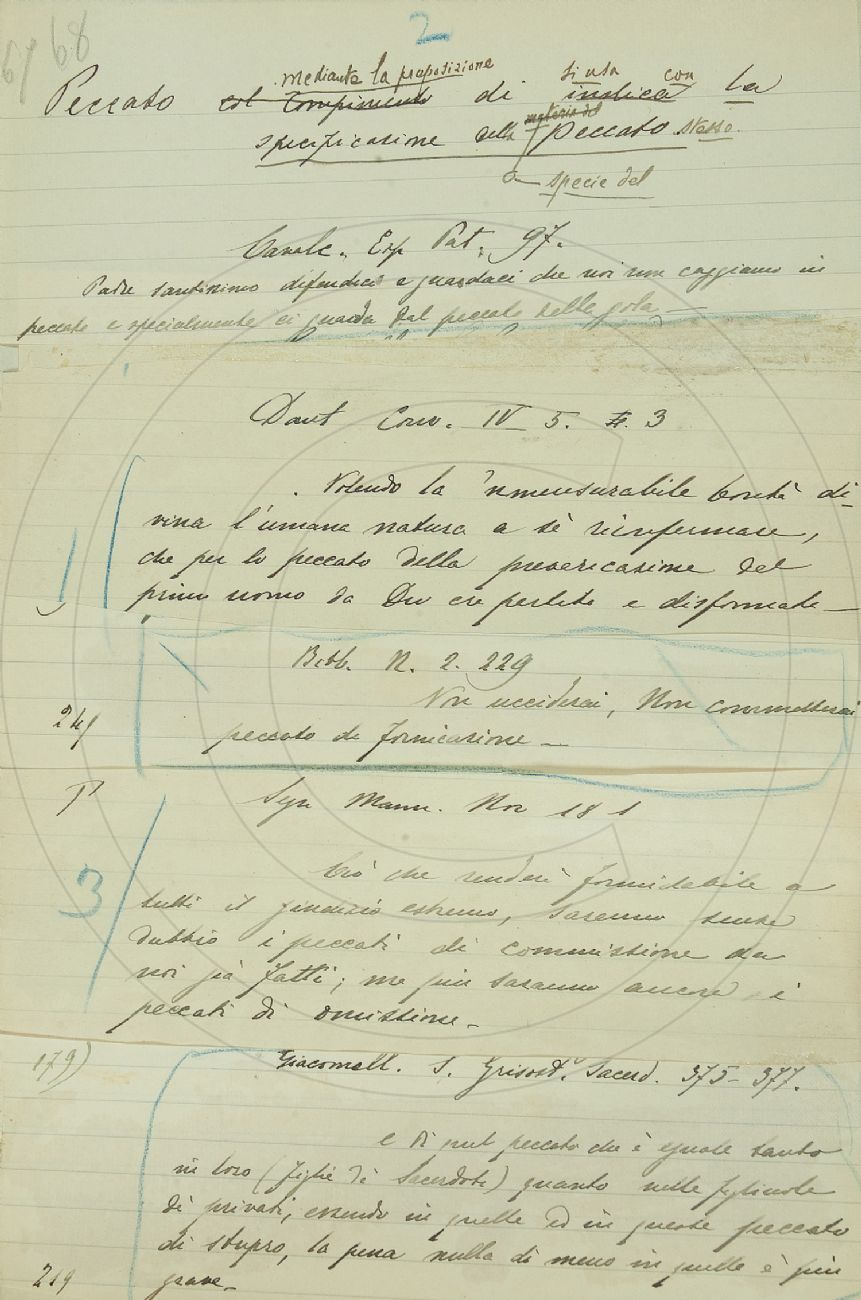 2
68
mediante la preposizione si usa con
Peccato col Compimento di indica la
materia del
specificazione della peccato stesso.
specie del
Cavalc. Esp. Pat. 97.
Padre santissimo difendici e guardaci che noi non caggiamo in
peccato e specialmente ci guarda dal peccato della gola, —
Dant Conv. IV 5. 3
Volendo la 'nmensurabile bontà di-
vina l'umana natura a sè riconfermare,
che per lo peccato della prevericazione del
primo uomo da Dio era partita e disformata —
Bibb. N. 2. 229
Non ucciderai, Non commetterai
peccato di fornicazione —
241
Segn Mann. Nov 18 1
3
Ciò che renderà formidabile a
tutti il giudizio estremo, saranno senza
dubbio i peccati di commissione da
noi già fatti; ma più saranno ancora i
peccati di omissione —
179)
Giacomell. S. Grisost. Sacerd. 375-377.
e di quel peccato che è eguale tanto
in loro (figlie di Sacerdoti) quanto nelle figliuole
di privati, essendo in quelle ed in queste peccato
di stupro, la pena nulla di meno in quelle è più
grave —
219